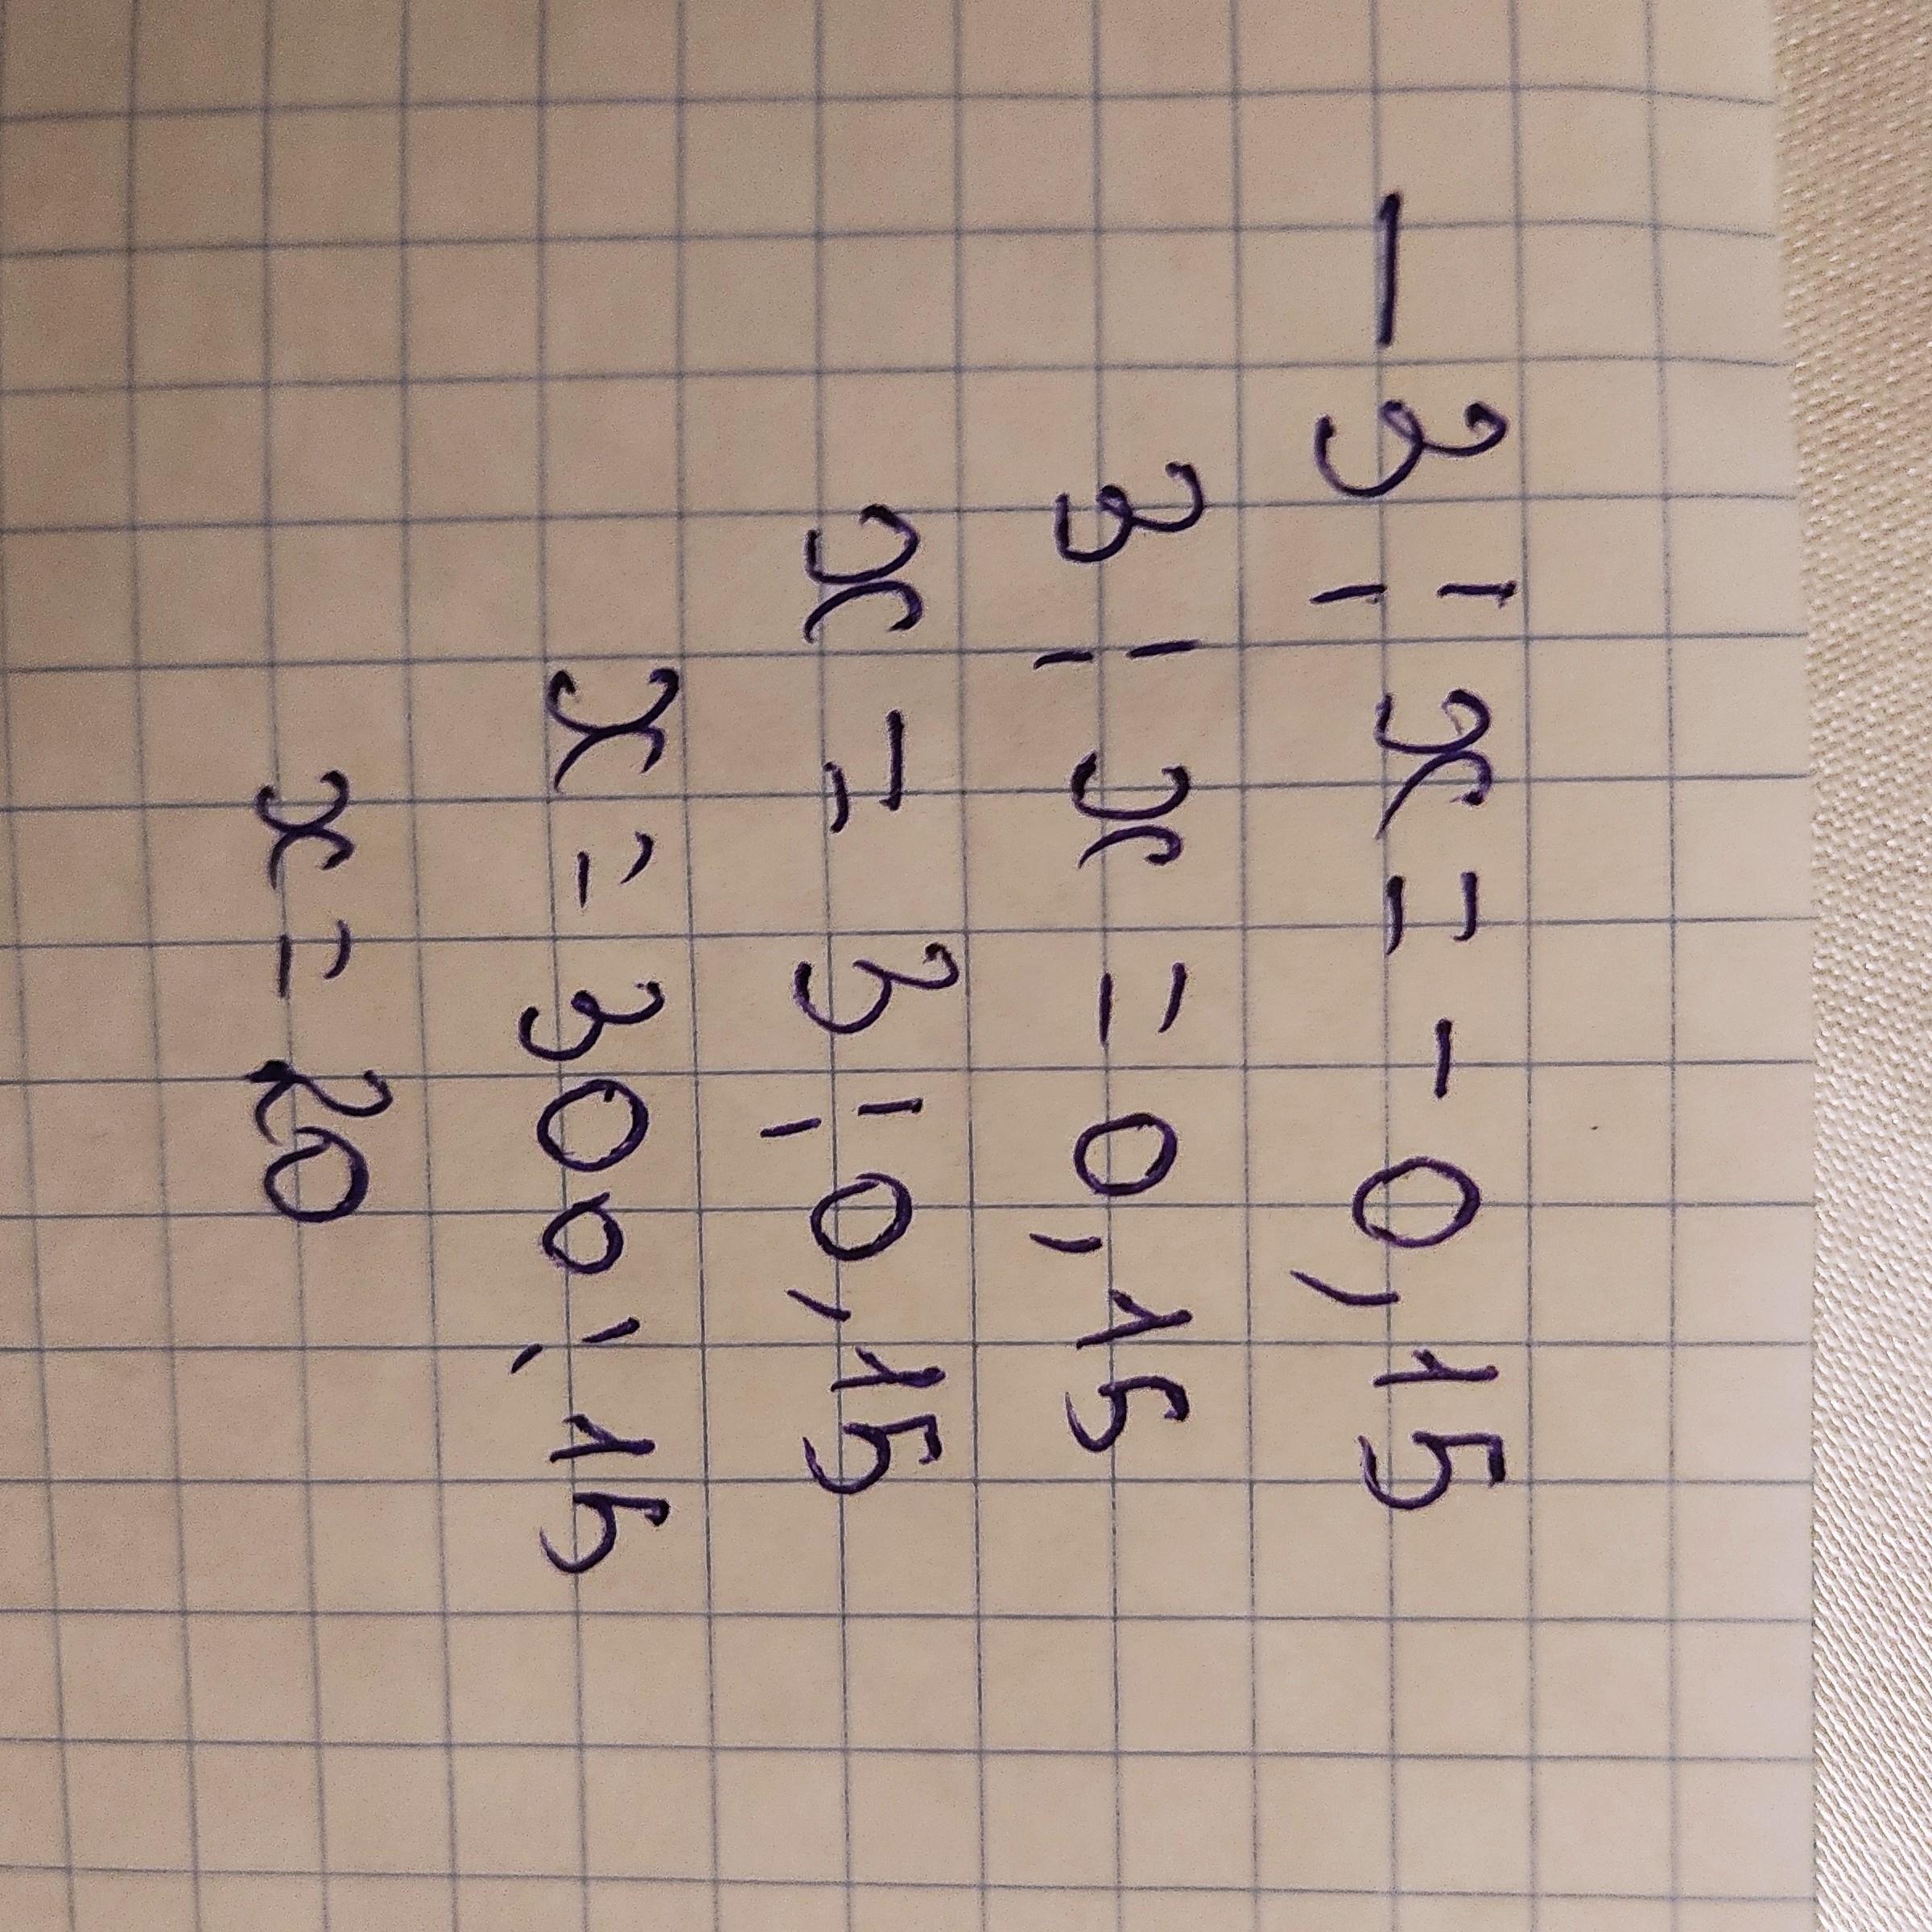 -3 : x = -0,15
3 : x = 0,15
x = 3 : 0,15
x = 300 : 15
x = 20